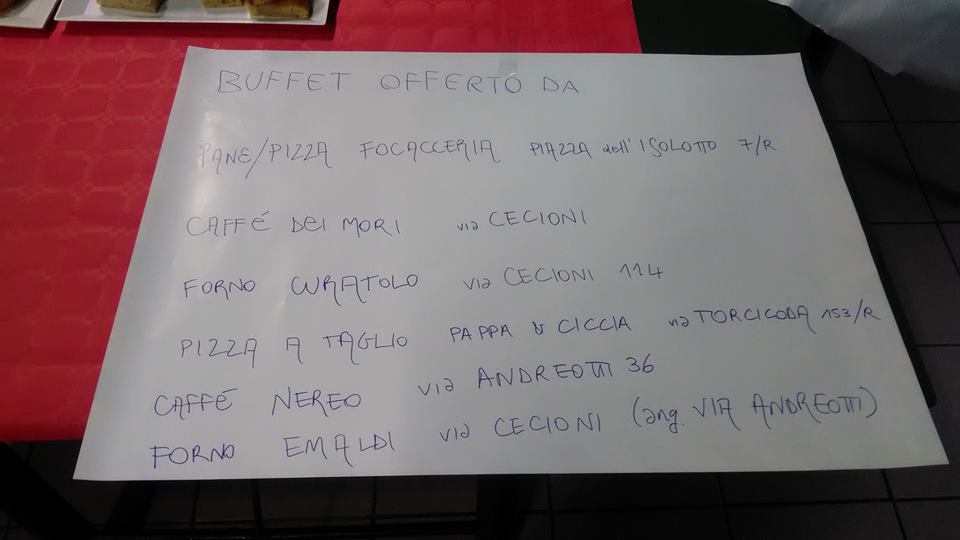 BUFFET OFFERTO DA.
PANE/PIZZA FOCACCERIA PIAZZA dell'ISOLOTTO 7/R
CAFFÉ DEI MORI via CECIONI
FORNO CURATOLO via CECIONI 114
PIZZA A TAGLIO PAPPA & CICCIA via TORCICODA 153/R
CAFFÉ NEREO via ANDREOTTI 36
FORNO EMALDI via CECIONI (ang. VIA ANDREOTTI)